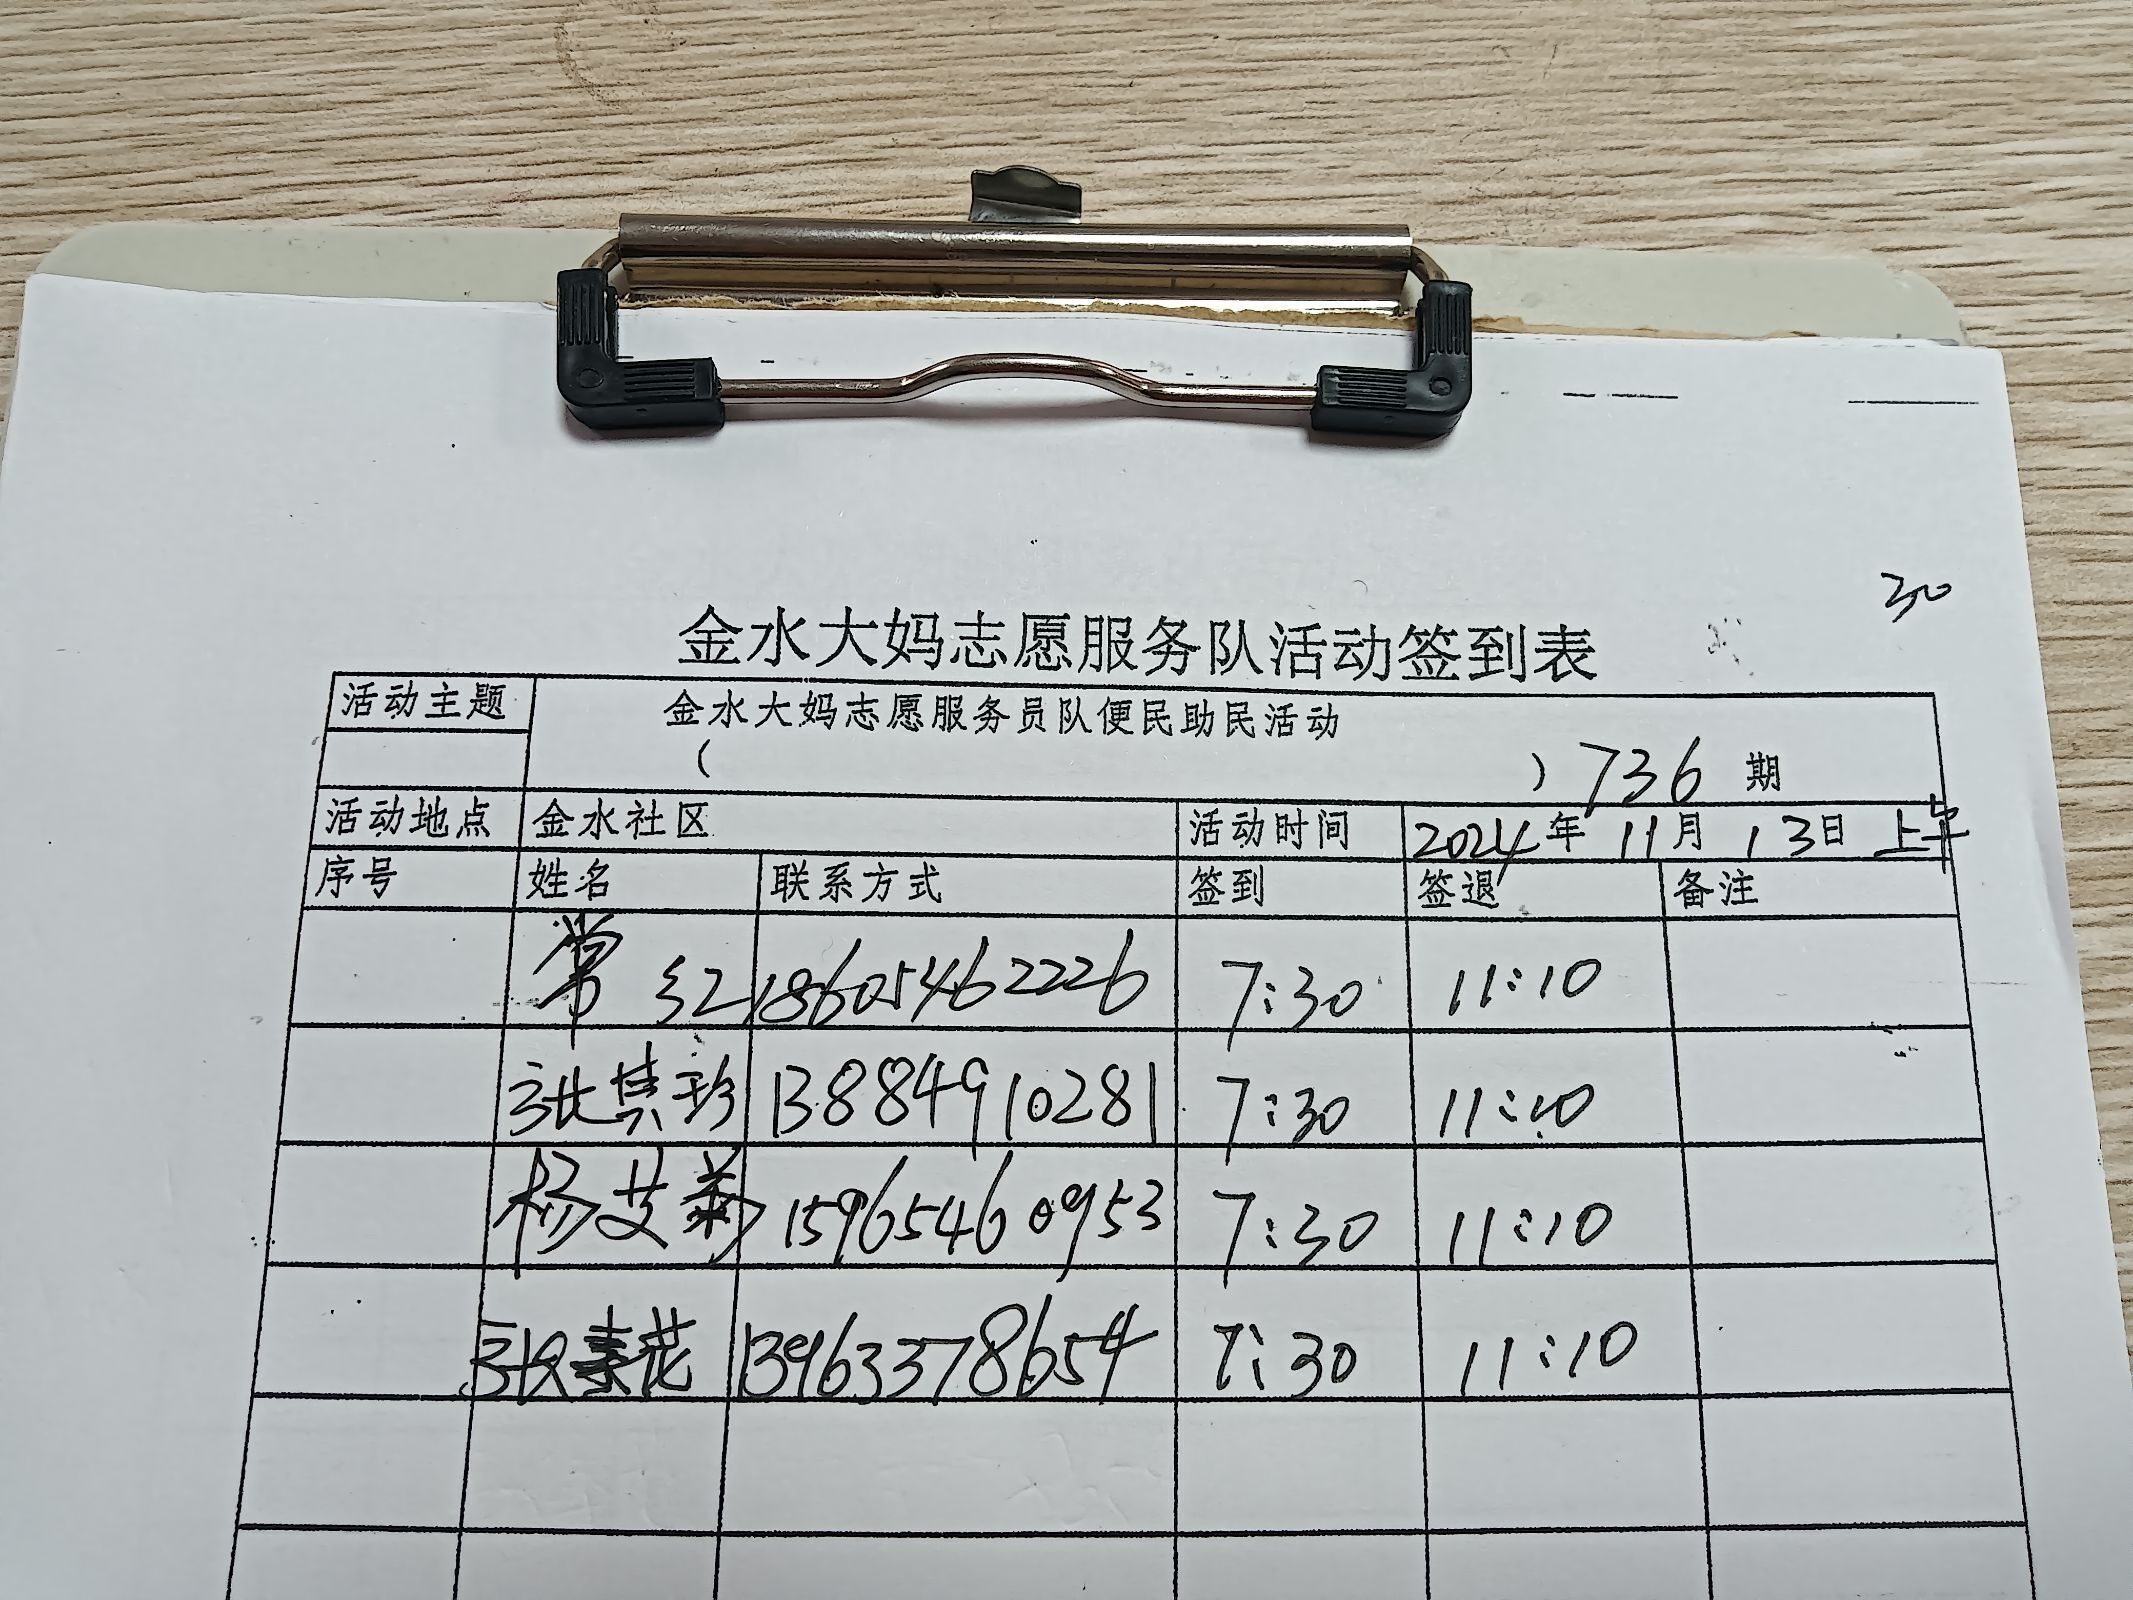 30
金水大妈志愿服务队活动签到表
活动主题 金水大妈志愿服务员队便民助民活动
( ) 736 期
活动地点 金水社区 活动时间 2024年 11月 13日 上午
序号 姓名 联系方式 签到 签退 备注
常红 18605462226 7:30 11:10
张其珍 13884910281 7:30 11:10
杨艾菊 15965460953 7:30 11:10
张素花 13963378654 7:30 11:10